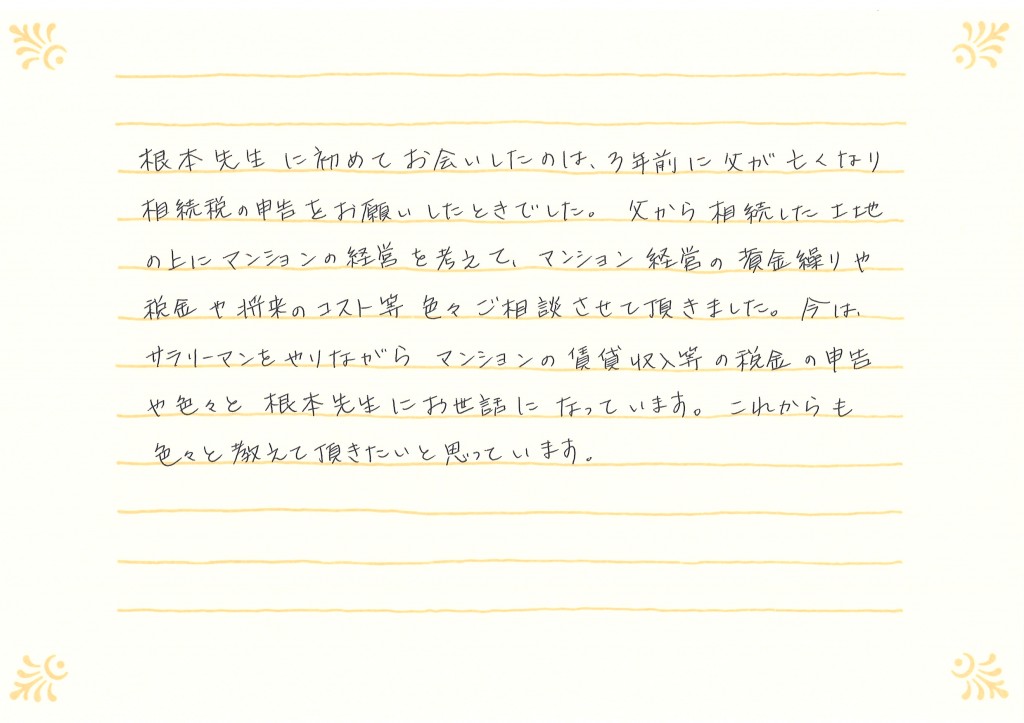 根本先生に初めてお会いしたのは、3年前に父が亡くなり
相続税の申告をお願いしたときでした。父から相続した土地
の上にマンションの経営を考えて、マンション経営の資金繰りや
税金や将来のコスト等色々ご相談させて頂きました。今は、
サラリーマンをやりながらマンションの賃貸収入等の税金の申告
や色々と根本先生にお世話になっています。これからも
色々と教えて頂きたいと思っています。